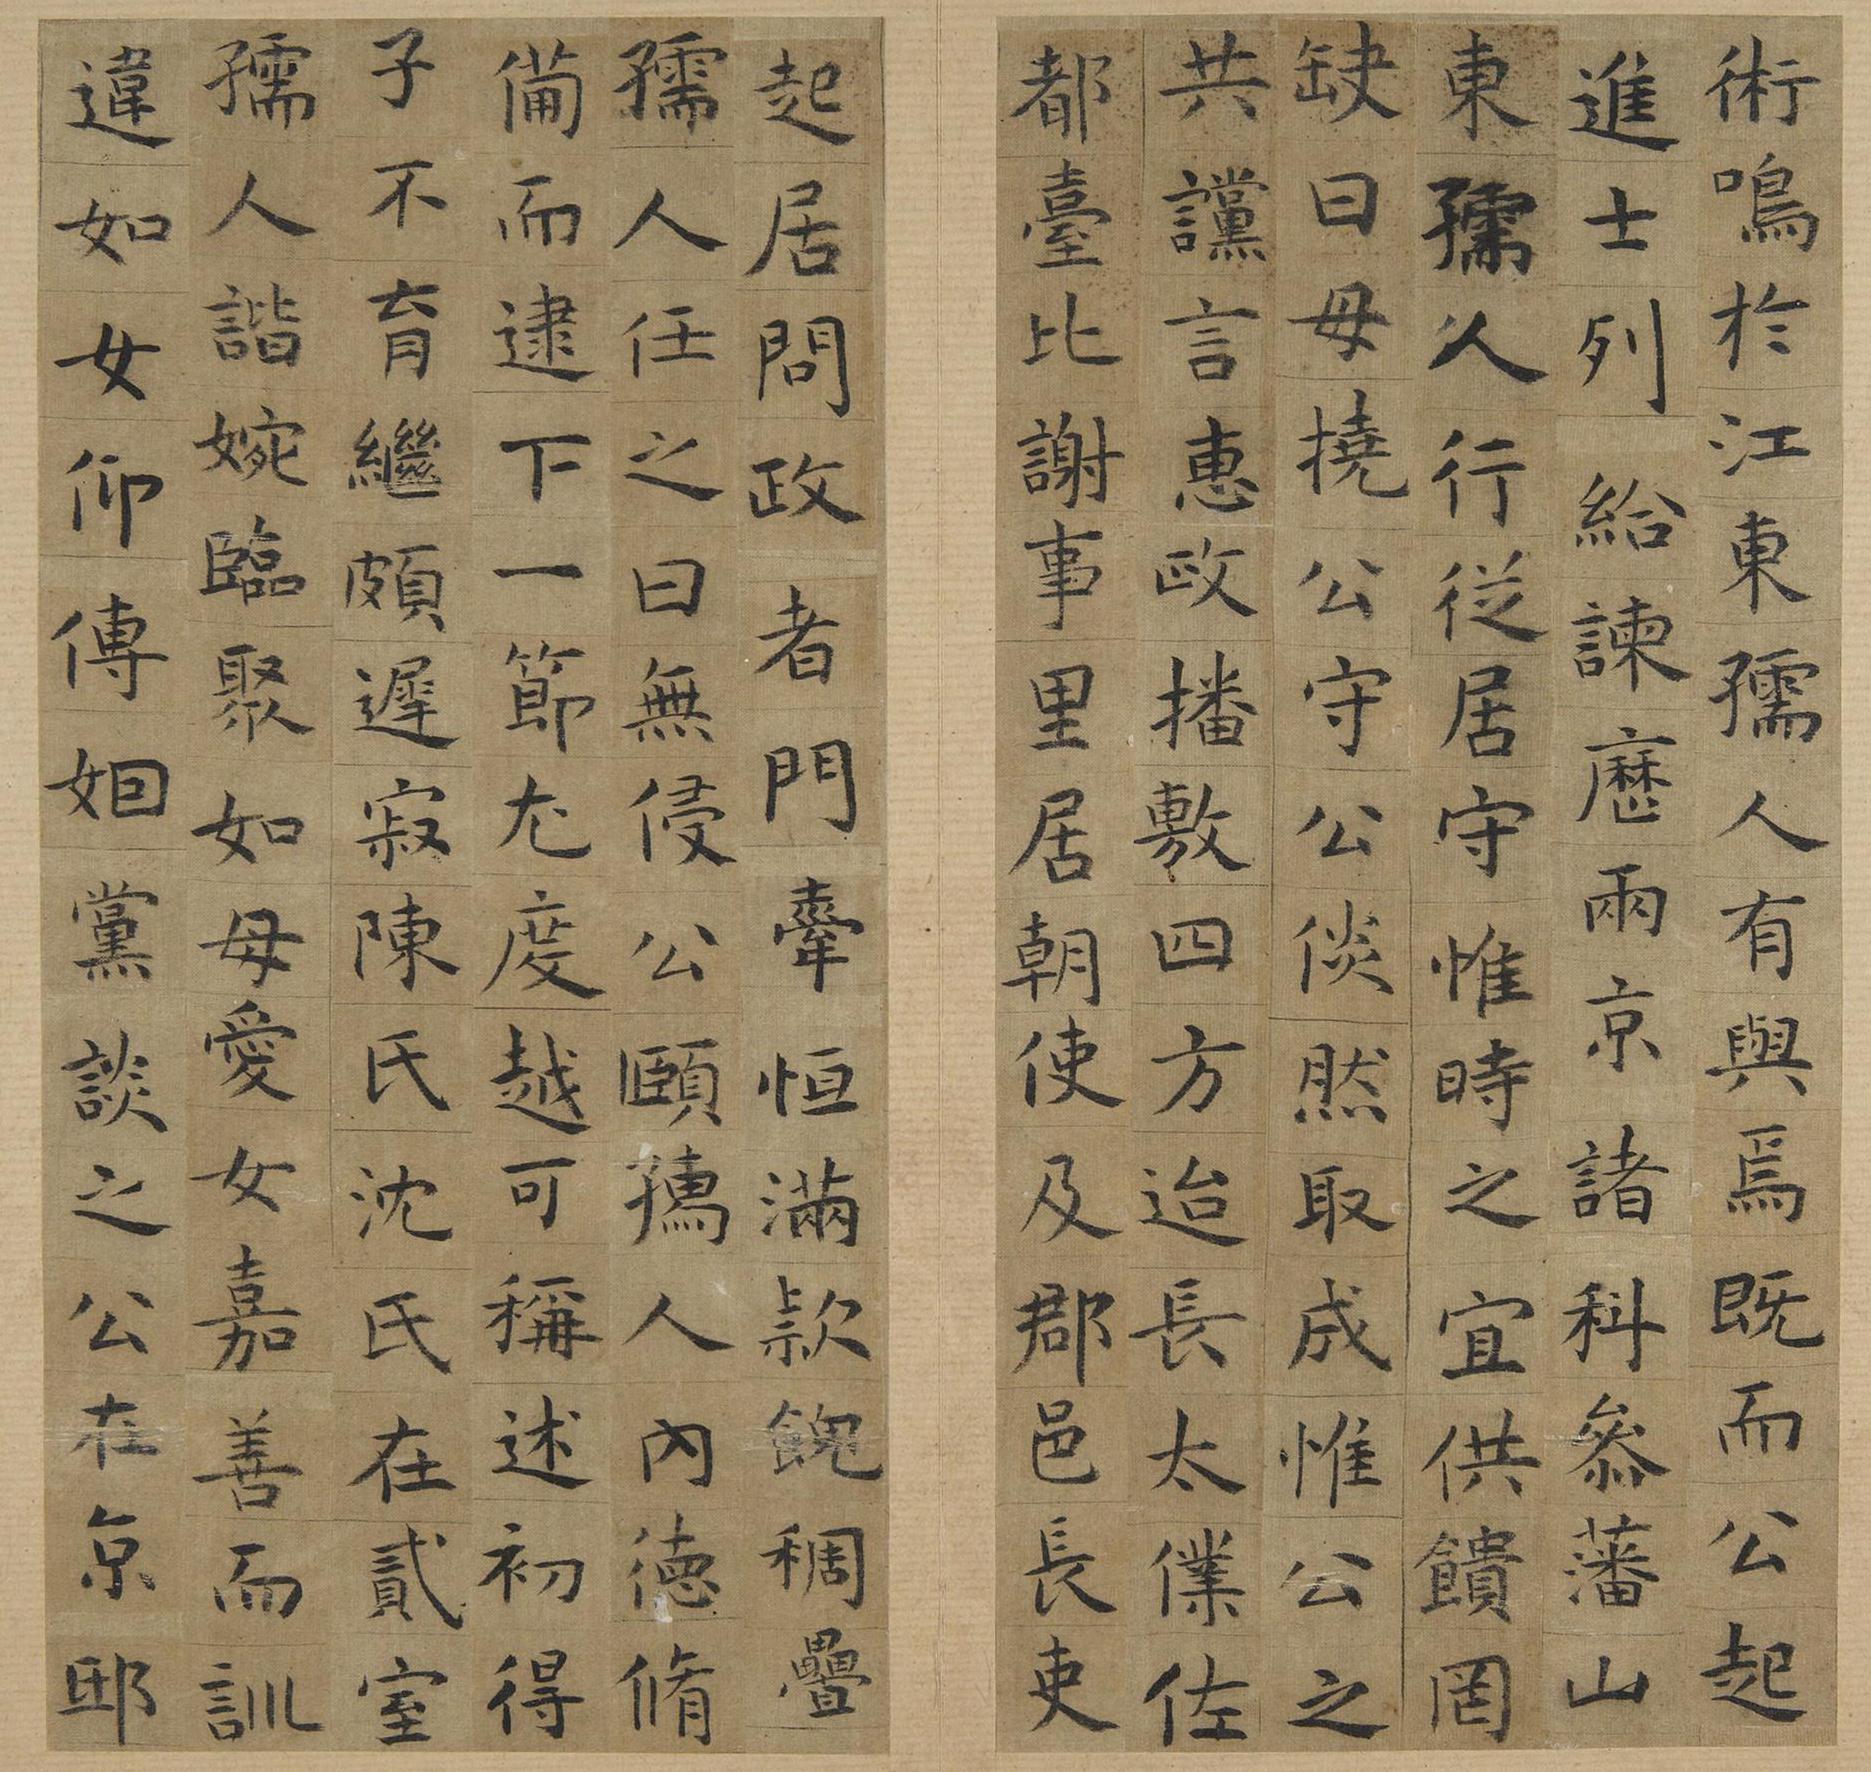 術鳴於江東孺人有與焉既而公起
進士列給諫歷兩京諸科參藩山
東孺人行從居守惟時之宜供饋罔
缺曰毋撓公守公倓然取成惟公之
共讜言惠政播敷四方迨長太僕佐
都臺比謝事里居朝使及郡邑長吏
起居問政者門牽恒滿款餽稠疊
孺人任之曰無侵公頤孺人內德脩
備而逮下一節尤度越可稱述初得
子不育繼頗遲寂陳氏沈氏在貳室
孺人諧婉臨聚如母愛女嘉善而訓
違如女仰傅姻黨談之公在京邸